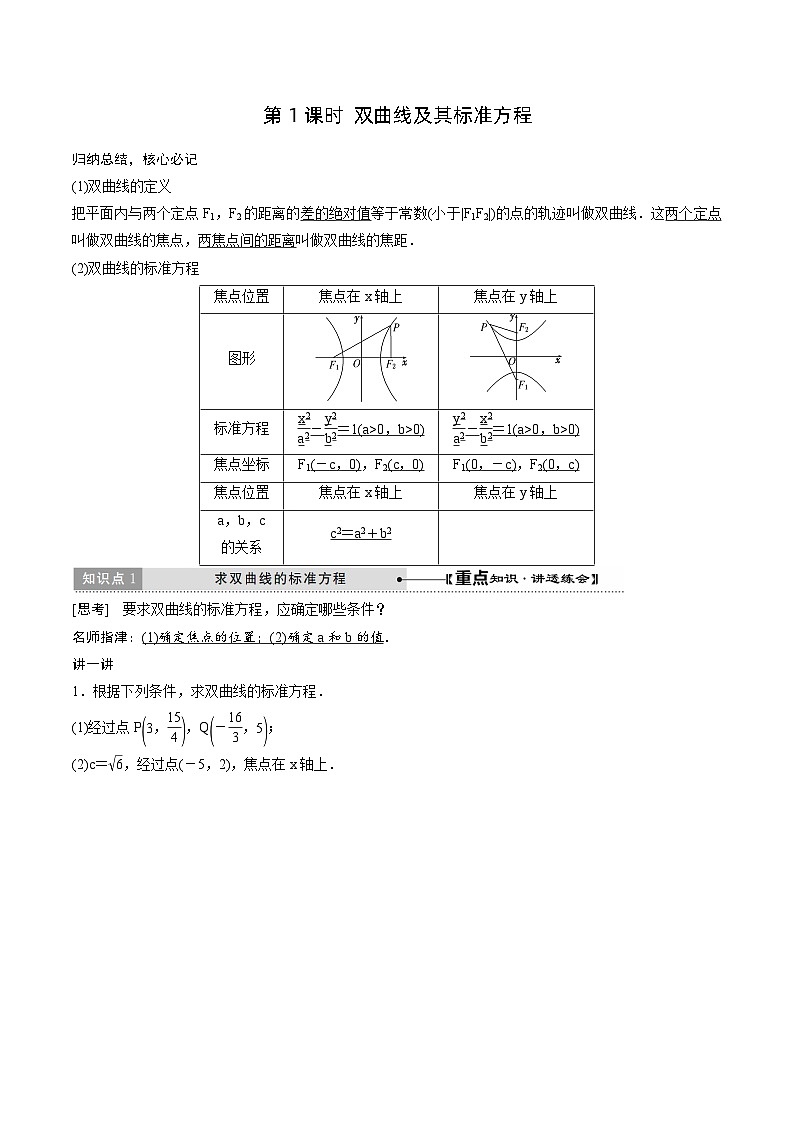 第 1 课时 双曲线及其标准方程
归纳总结，核心必记
(1)双曲线的定义
把平面内与两个定点 F₁，F₂ 的距离的差的绝对值等于常数(小于|F₁F₂|)的点的轨迹叫做双曲线．这两个定点
叫做双曲线的焦点，两焦点间的距离叫做双曲线的焦距．
(2)双曲线的标准方程
焦点位置 焦点在 x 轴上 焦点在 y 轴上
图形 y P F₁ O F₂ x y P F₂ O x F₁
标准方程 x²/a²－y²/b²＝1(a>0，b>0) y²/a²－x²/b²＝1(a>0，b>0)
焦点坐标 F₁(－c，0)，F₂(c，0) F₁(0，－c)，F₂(0，c)
焦点位置 焦点在 x 轴上 焦点在 y 轴上
a，b，c
的关系 c²＝a²＋b²
知识点 1 求双曲线的标准方程 【重点知识·讲透练会】
[思考] 要求双曲线的标准方程，应确定哪些条件？
名师指津：(1)确定焦点的位置；(2)确定 a 和 b 的值．
讲一讲
1．根据下列条件，求双曲线的标准方程．
(1)经过点 P(3，15/4)，Q(－16/3，5)；
(2)c＝√6，经过点(－5，2)，焦点在 x 轴上．